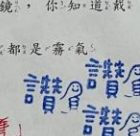 鏡，你知道戴
都是霧氣
讚
讚
讚